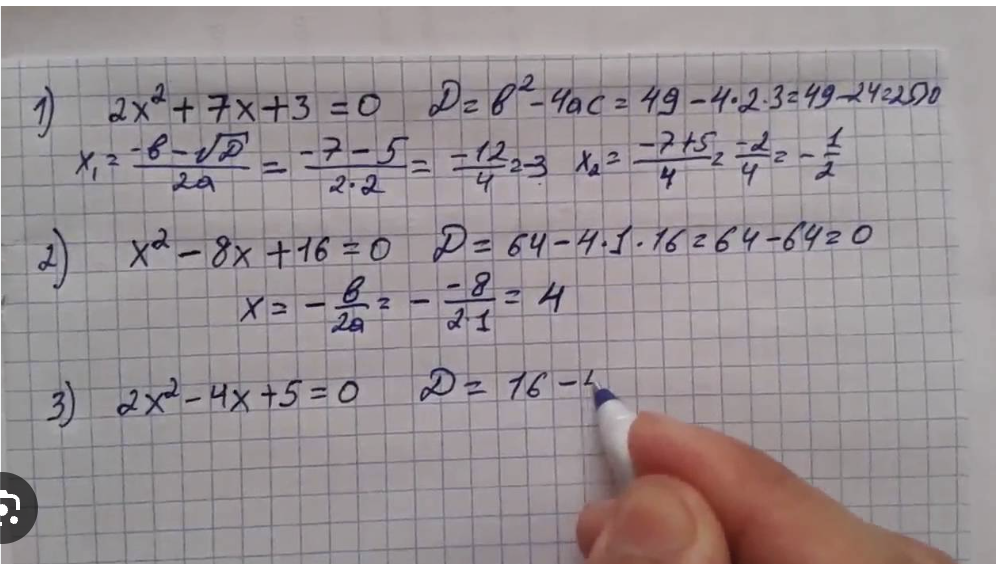 1) 2x² + 7x + 3 = 0 D = b² - 4ac = 49 - 4·2·3 = 49 - 24 = 25 > 0
x₁ = (-b - √D)/(2a) = (-7 - 5)/(2·2) = (-12)/4 = -3 x₂ = (-7 + 5)/4 = (-2)/4 = -1/2
2) x² - 8x + 16 = 0 D = 64 - 4·1·16 = 64 - 64 = 0
x = -b/(2a) = -(-8)/(2·1) = 4
3) 2x² - 4x + 5 = 0 D = 16 -